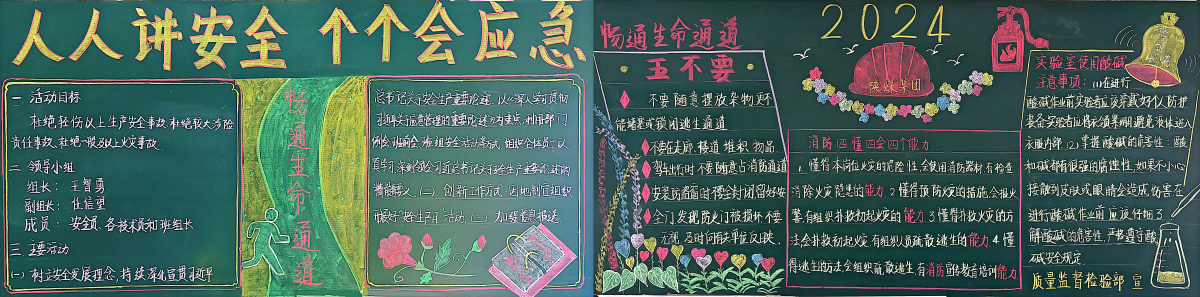 人人讲安全 个个会应急
一 活动目标
杜绝轻伤以上生产安全事故 杜绝较大涉险
责任事故、杜绝一般及以上火灾事故
二 领导小组
组长： 王智勇
副组长： 任信望
成员： 安全员、各技术员和班组长
三 主要活动
(一) 树立安全发展理念，持续深化宣贯习近平
畅通生命通道
总书记关于安全生产重要论述，以《深入学习贯彻
习近平关于应急管理的重要论述》为重点，利用部门
例会、班前会、班组安全活动等，组织全体员工认
真学习，深刻领会习总书记关于安全生产重要论述的
精髓要义。(二) 创新工作方式，因地制宜组织
开展好“安全生产月”活动 (三) 加强信息报送
畅通生命通道
五不要
不要随意摆放杂物更不
能堵塞或锁闭逃生通道
不要在走廊、楼道堆积物品
驾车出行时不要随意占消防通道
安装防盗窗时不要全封闭留好安
全门 发现防火门被损坏不要
无视，及时向有关单位反映
2024
陕煤集团
消防四懂四会四个能力
1. 懂得本岗位火灾的危险性，会使用消防器材，有检查
消除火灾隐患的能力 2 懂得预防火灾的措施，会报火
警，有组织扑救初起火灾的能力 3 懂得扑救火灾的方
法会扑救初起火灾有组织人员疏散逃生的能力 4 懂
得逃生的方法会组织疏散逃生有消防宣传教育培训能力
实验室使用酸碱
注意事项：(1)在进行
酸碱作业前实验者应该穿戴好个人防护
装备实验者应将衣领束绷避免液体进入
衣服内部 (2) 掌握酸碱的危害性：酸
和碱都有很强的腐蚀性，如果不小心
接触到皮肤或眼睛会造成伤害在
进行酸碱作业前应该仔细了
解酸碱的危害性，严格遵守酸
碱安全规定
质量监督检验部 宣